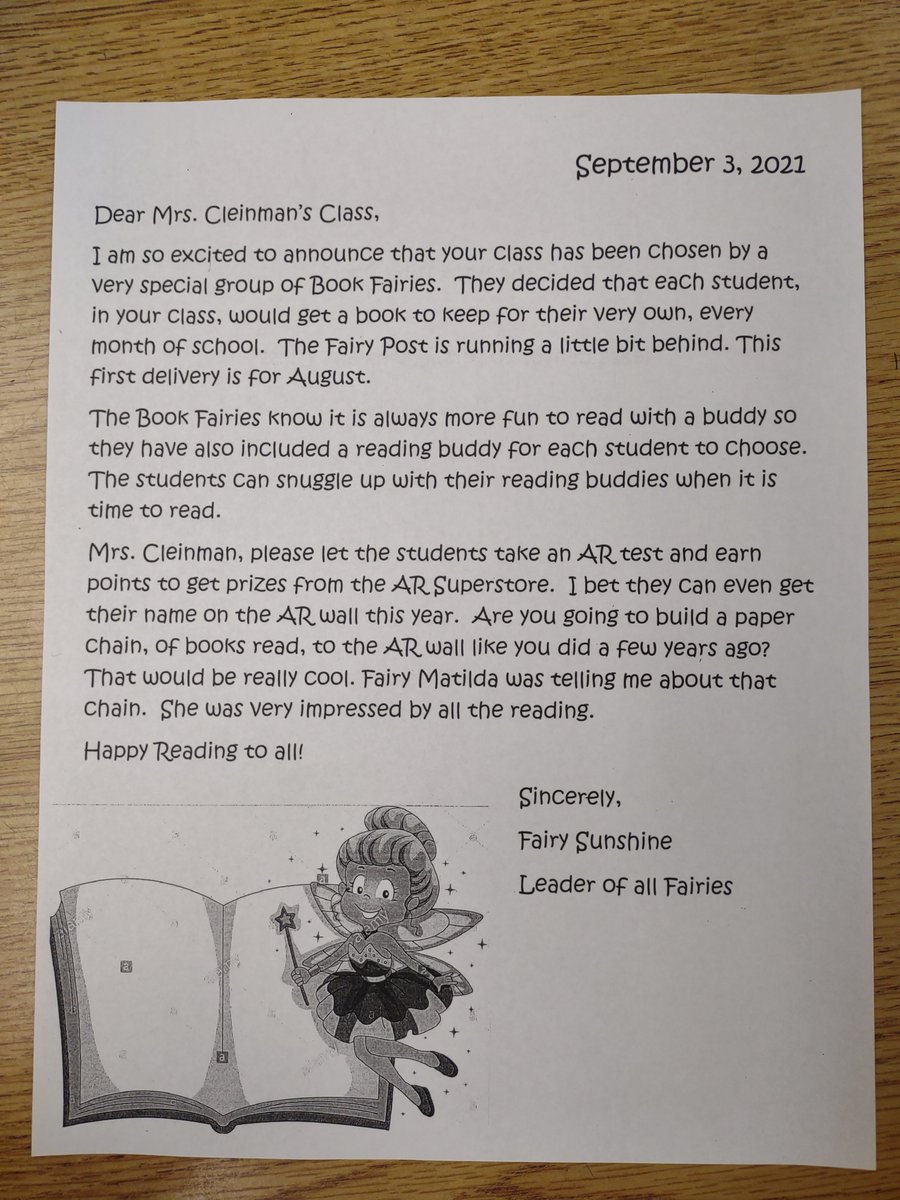 September 3, 2021
Dear Mrs. Cleinman's Class,
I am so excited to announce that your class has been chosen by a
very special group of Book Fairies. They decided that each student,
in your class, would get a book to keep for their very own, every
month of school. The Fairy Post is running a little bit behind. This
first delivery is for August.
The Book Fairies know it is always more fun to read with a buddy so
they have also included a reading buddy for each student to choose.
The students can snuggle up with their reading buddies when it is
time to read.
Mrs. Cleinman, please let the students take an AR test and earn
points to get prizes from the AR Superstore. I bet they can even get
their name on the AR wall this year. Are you going to build a paper
chain, of books read, to the AR wall like you did a few years ago?
That would be really cool. Fairy Matilda was telling me about that
chain. She was very impressed by all the reading.
Happy Reading to all!
Sincerely,
Fairy Sunshine
Leader of all Fairies
a
a
a